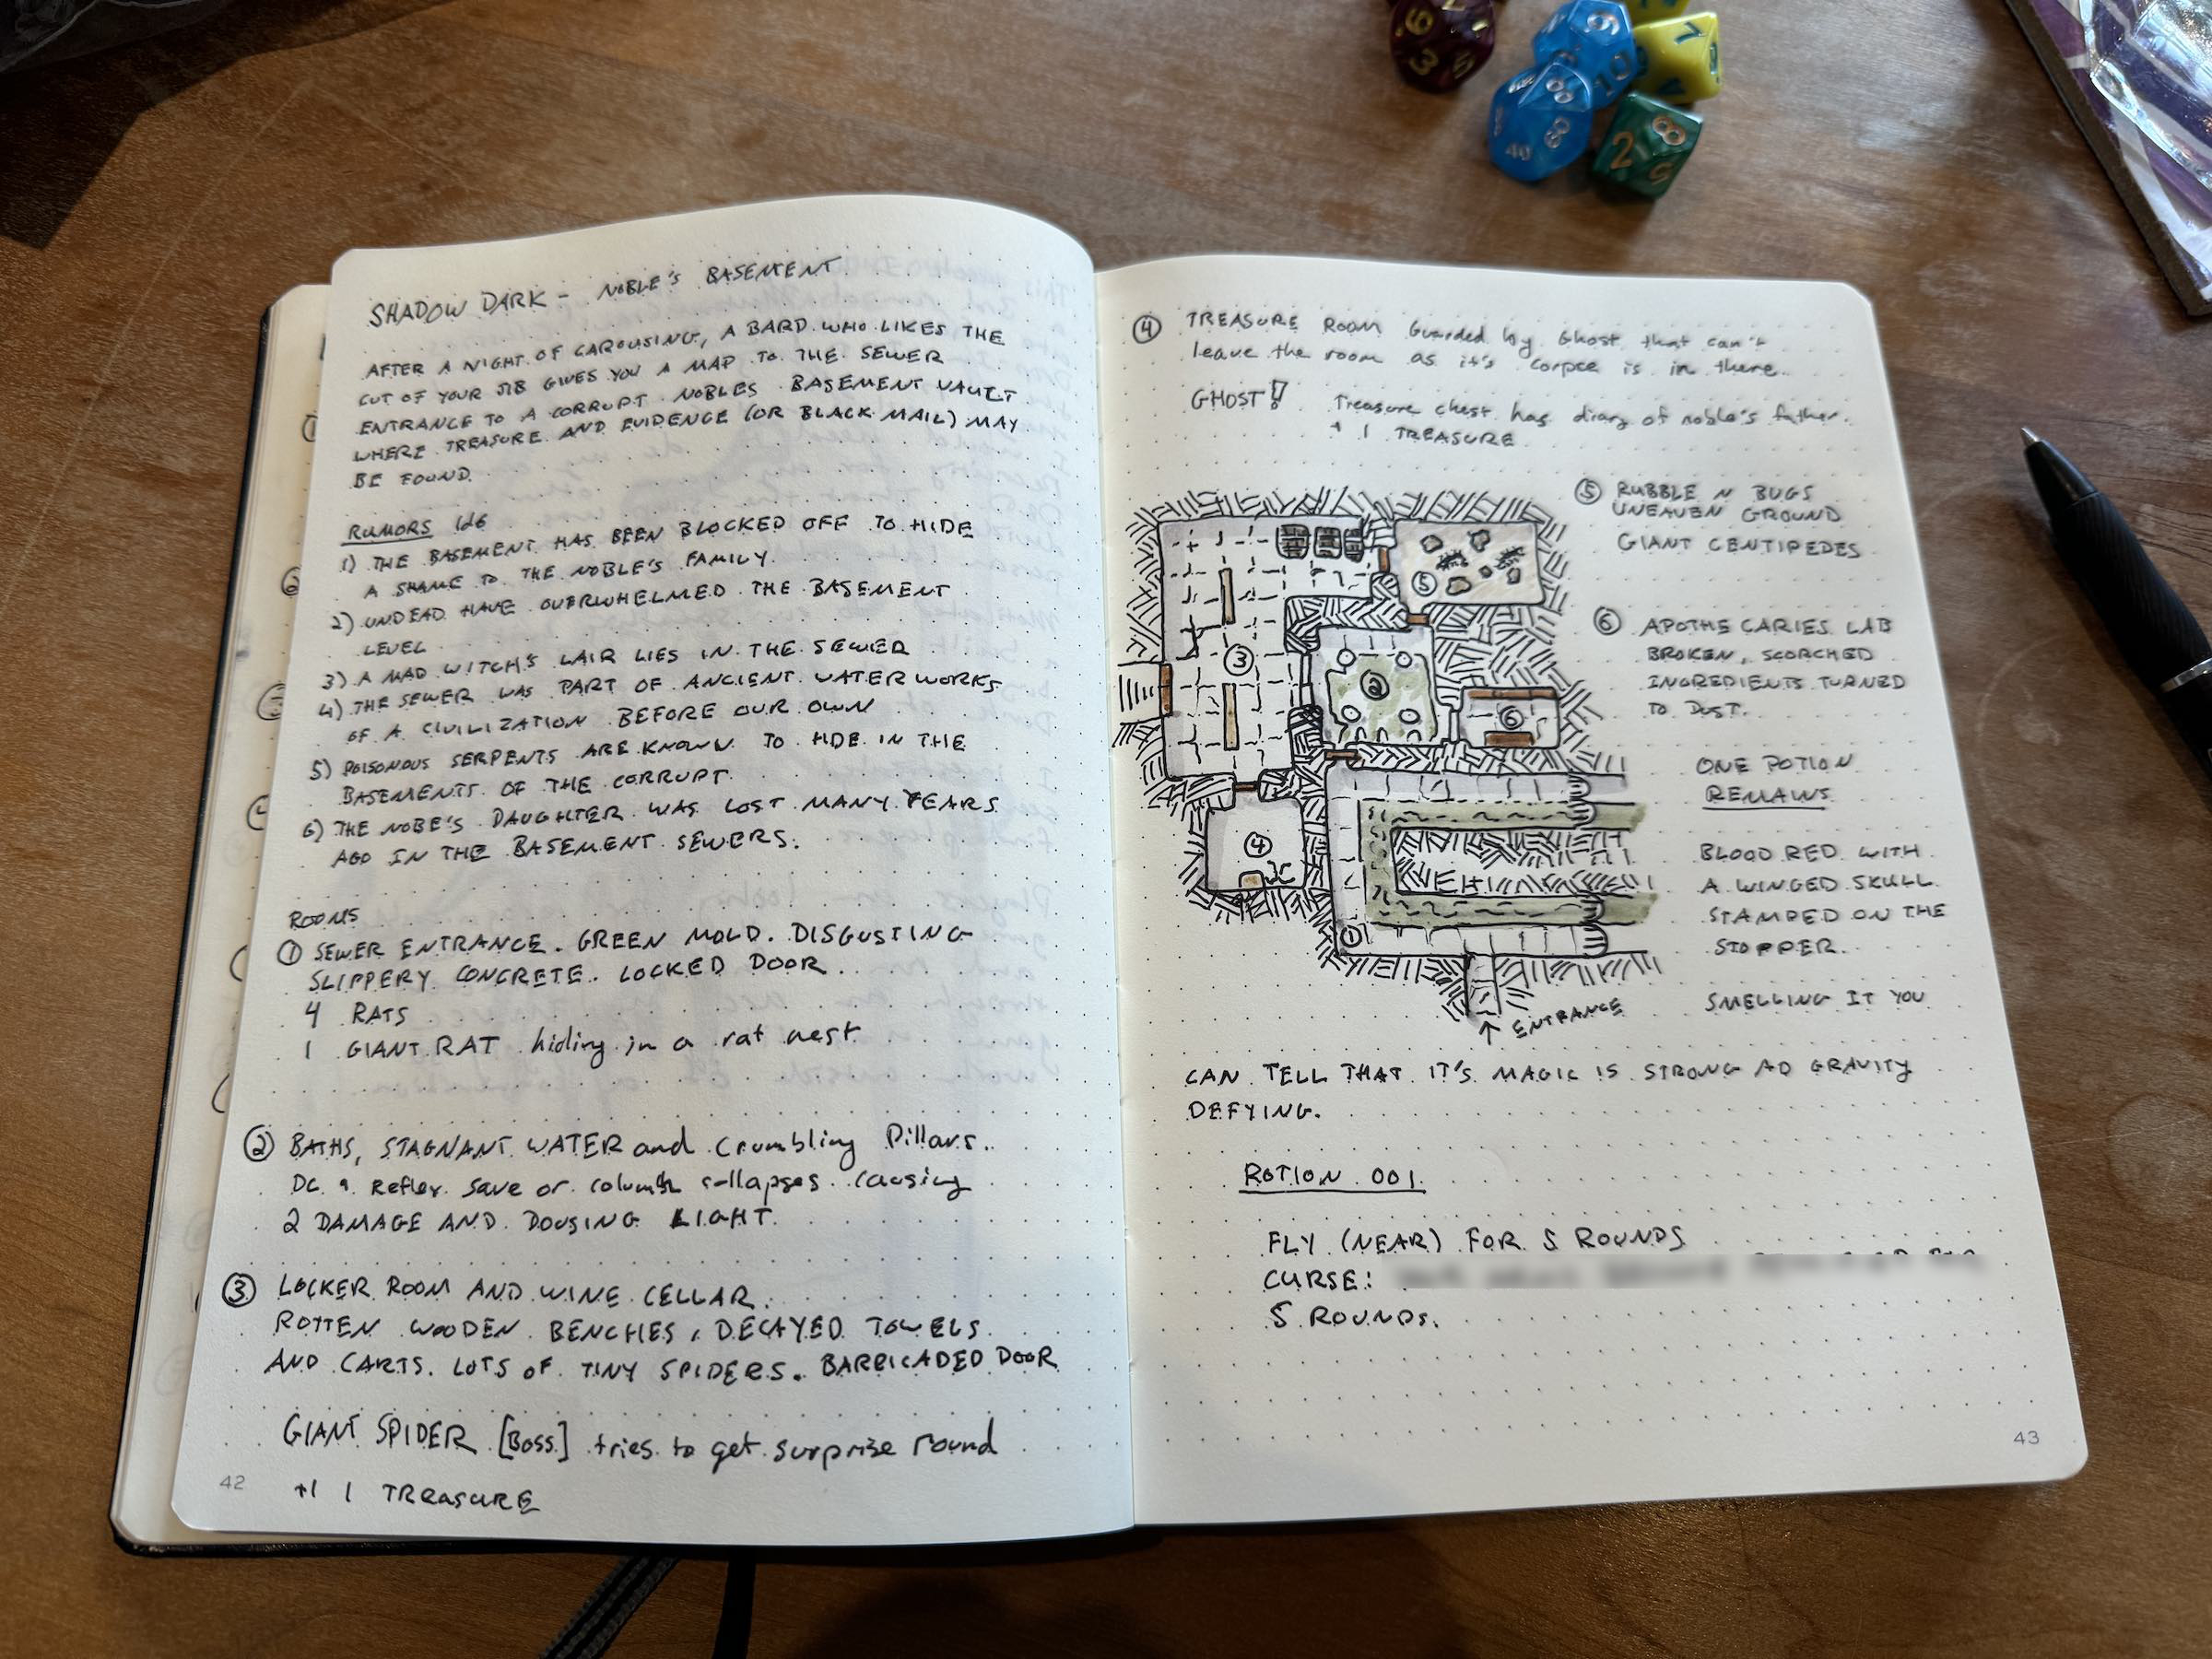 SHADOW DARK - NOBLE'S BASEMENT
AFTER A NIGHT OF CAROUSING, A BARD WHO LIKES THE
CUT OF YOUR JIB GIVES YOU A MAP TO THE SEWER
ENTRANCE TO A CORRUPT NOBLES BASEMENT VAULT
WHERE TREASURE AND EVIDENCE (OR BLACK MAIL) MAY
BE FOUND.
RUMORS 1d6
1) THE BASEMENT HAS BEEN BLOCKED OFF TO HIDE
A SHAME TO THE NOBLE'S FAMILY.
2) UNDEAD HAVE OVERWHELMED THE BASEMENT
LEVEL
3) A MAD WITCH'S LAIR LIES IN THE SEWER
4) THE SEWER WAS PART OF ANCIENT WATERWORKS
OF A CIVILIZATION BEFORE OUR OWN
5) POISONOUS SERPENTS ARE KNOWN TO HIDE IN THE
BASEMENTS OF THE CORRUPT.
6) THE NOBE'S DAUGHTER WAS LOST MANY YEARS
AGO IN THE BASEMENT SEWERS.
ROOMS
1 SEWER ENTRANCE. GREEN MOLD. DISGUSTING
SLIPPERY CONCRETE. LOCKED DOOR.
4 RATS
1 GIANT RAT hiding in a rat nest
2 BATHS, STAGNANT WATER and Crumbling Pillars.
DC 9 Reflex save or column collapses causing
2 DAMAGE AND DOUSING LIGHT.
3 LOCKER ROOM AND WINE CELLAR.
ROTTEN WOODEN BENCHES, DECAYED TOWELS
AND CARTS. LOTS OF TINY SPIDERS. BARRICADED DOOR
GIANT SPIDER [Boss] tries to get surprise round
+1 1 TREASURE
42
4 TREASURE ROOM Guarded by Ghost that can't
leave the room as it's corpse is in there.
GHOST! Treasure chest has diary of noble's father.
+ 1 TREASURE
5 RUBBLE N BUGS
UNEAVEN GROUND
GIANT CENTIPEDES
6 APOTHECARIES LAB
BROKEN, SCORCHED
INGREDIENTS TURNED
TO DUST.
ONE POTION
REMAINS
BLOOD RED WITH
A WINGED SKULL
STAMPED ON THE
STOPPER.
SMELLING IT YOU
CAN TELL THAT IT'S MAGIC IS STRONG AD GRAVITY
DEFYING.
3
5
2
6
4
1
↑ ENTRANCE
POTION 001
FLY (NEAR) FOR 5 ROUNDS
CURSE:
5 ROUNDS.
43